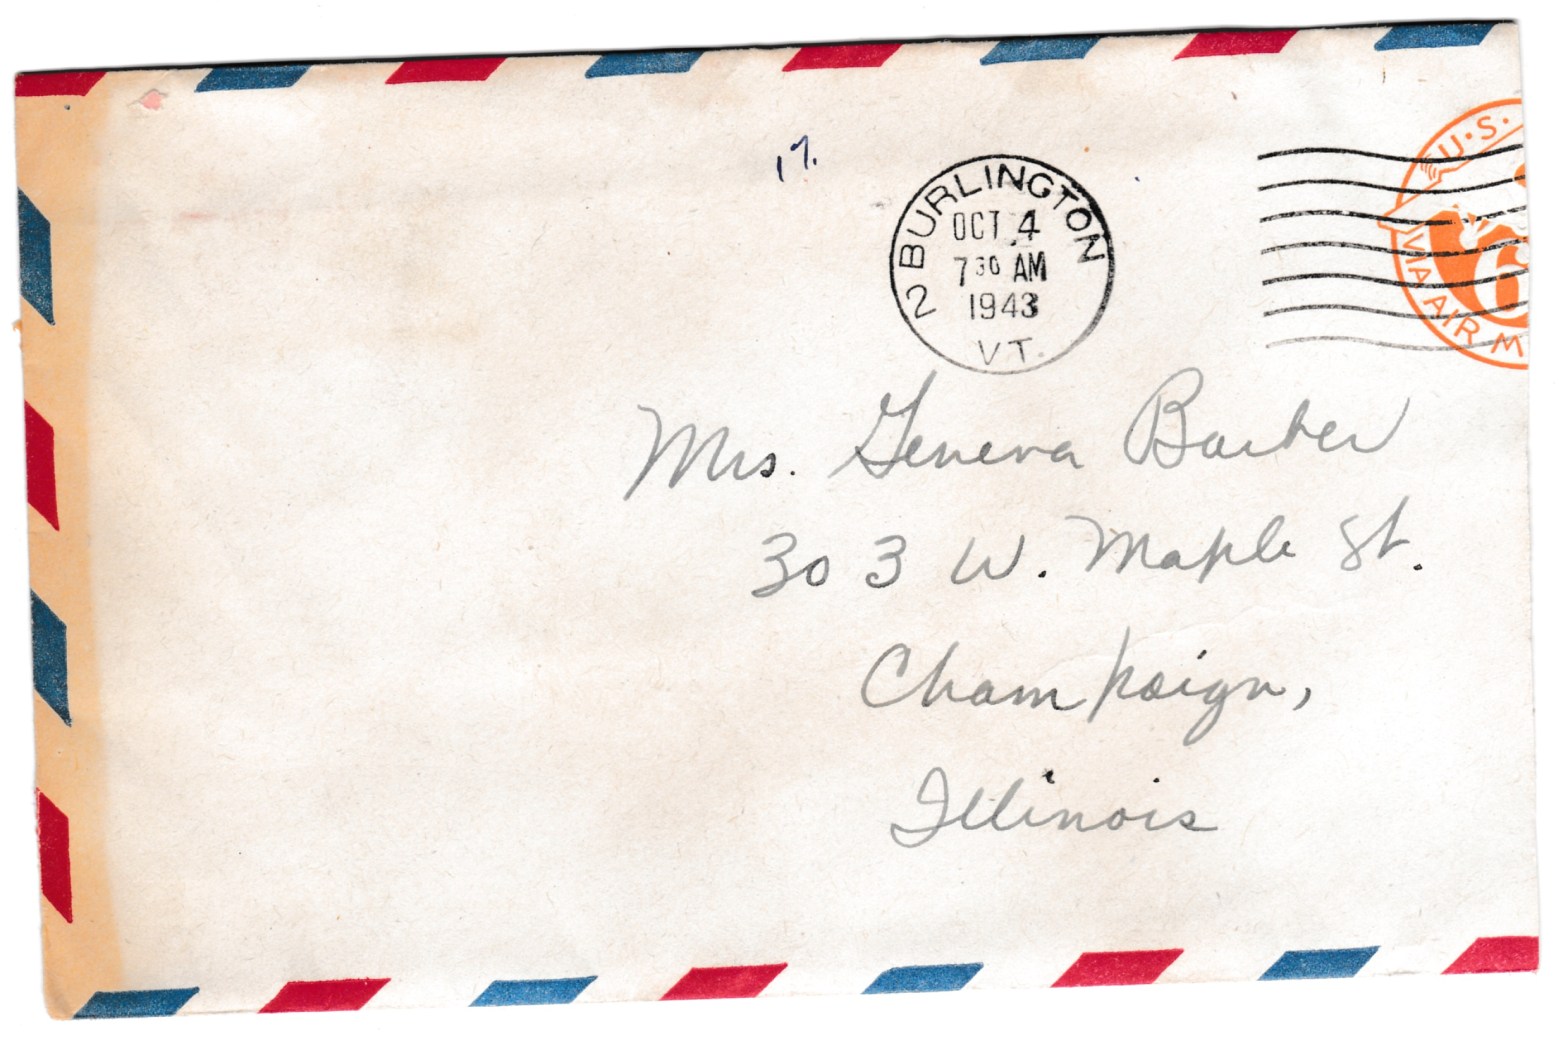 17.
2 BURLINGTON
OCT 4
7 30 AM
1943
VT.
U.S.
6
VIA AIR M
Mrs. Geneva Barber
303 W. Maple St.
Champaign,
Illinois